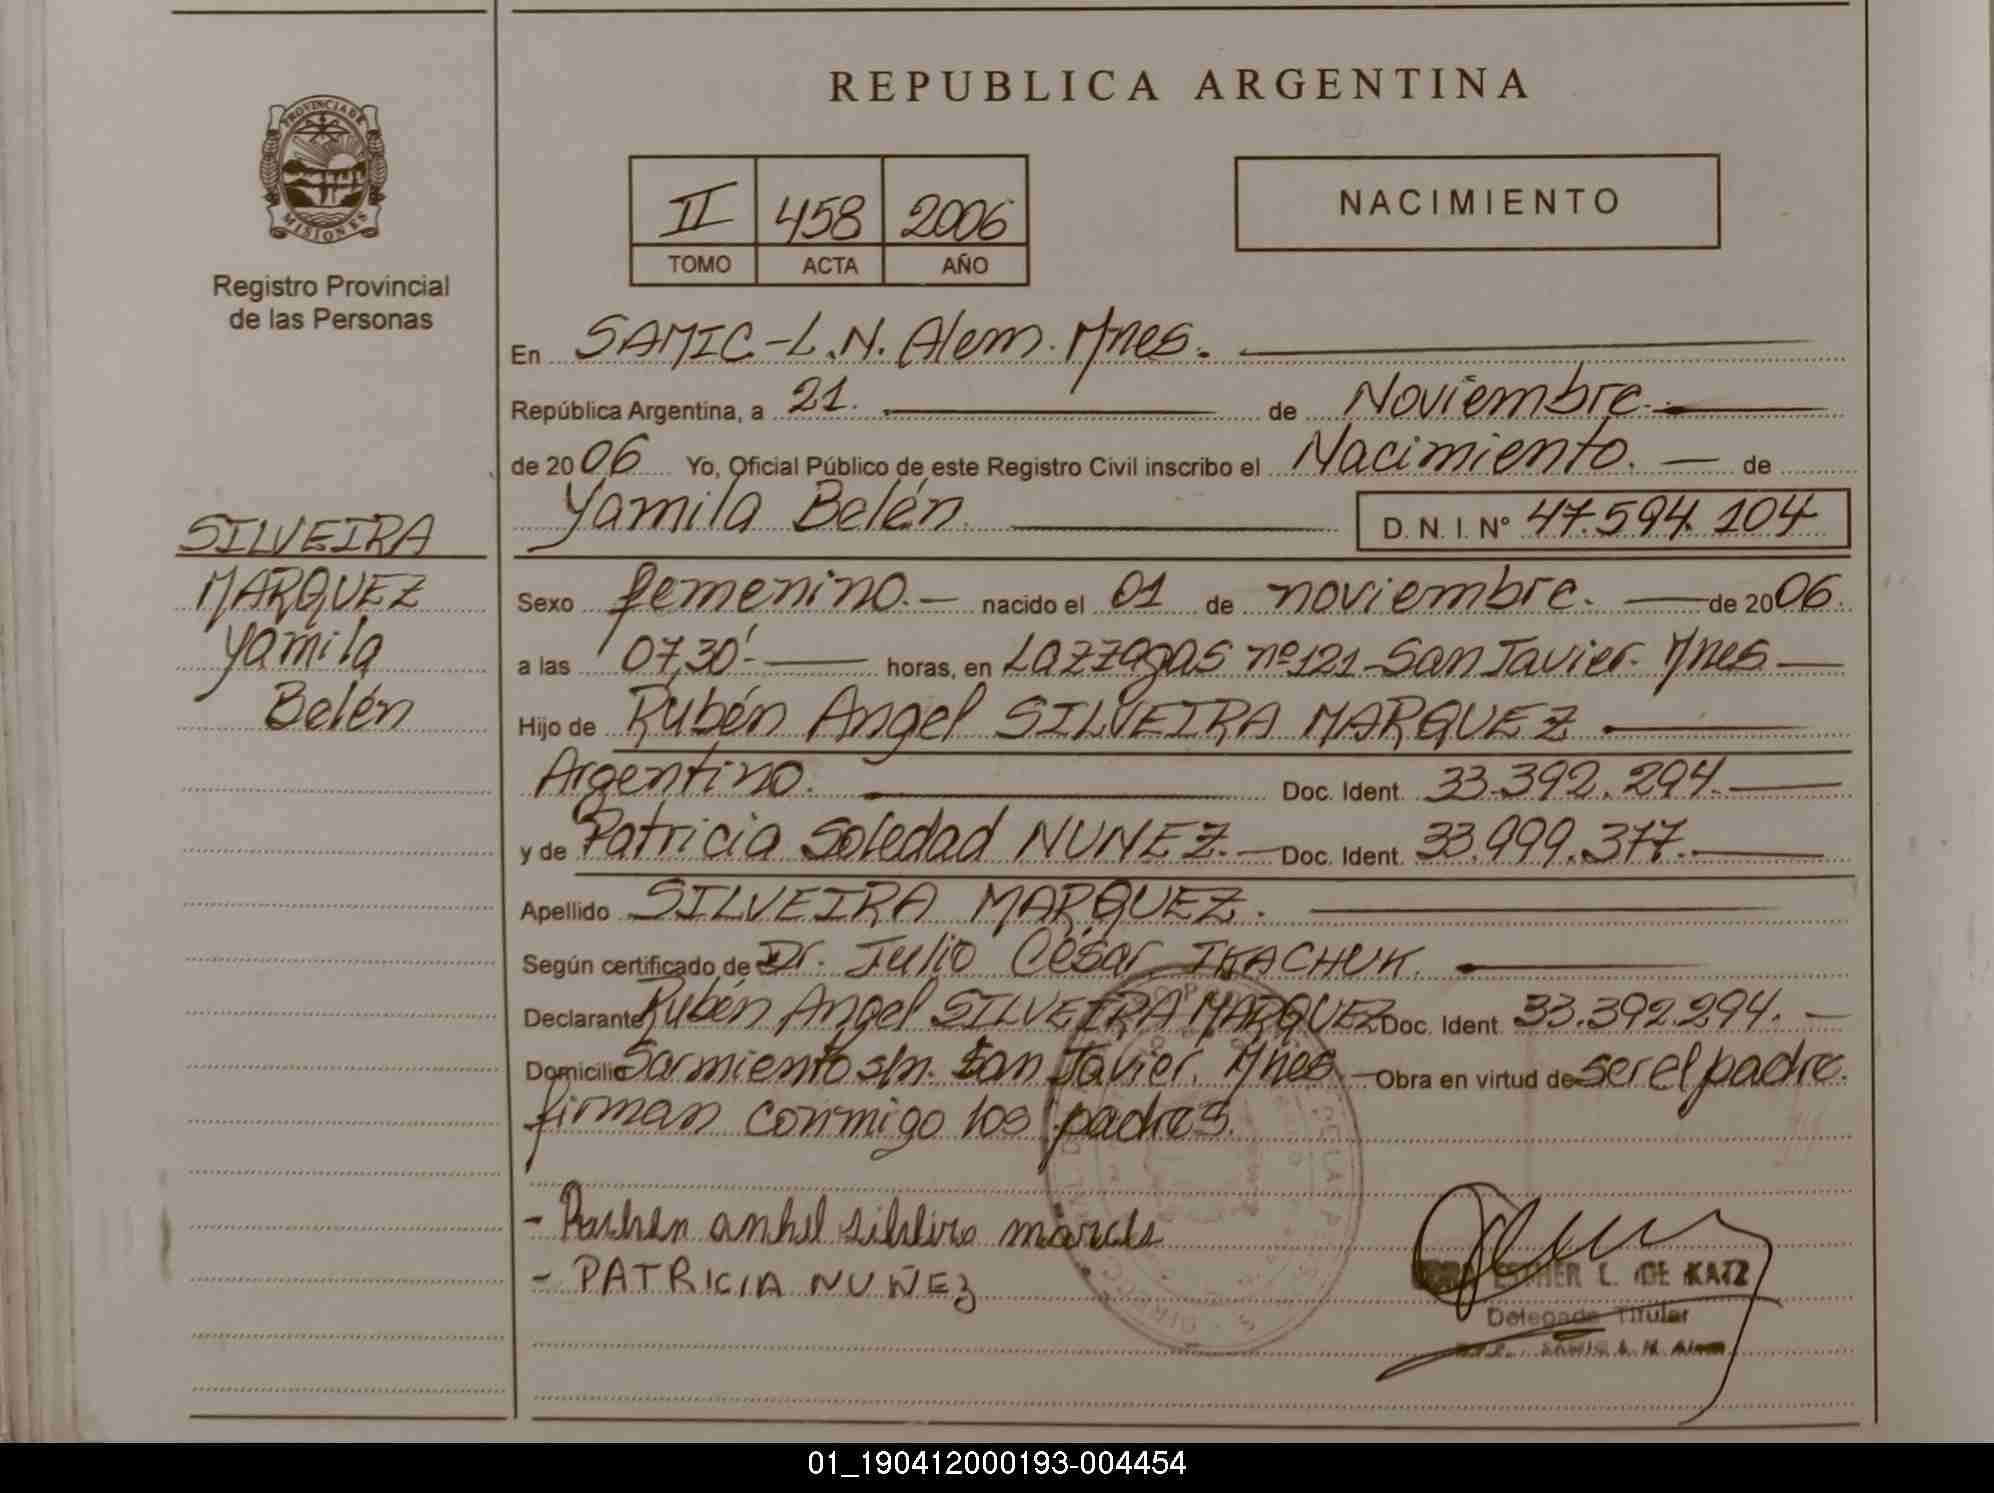 REPUBLICA ARGENTINA
PROVINCIA DE
MISIONES
Registro Provincial
de las Personas
II 458 2006
TOMO ACTA AÑO
NACIMIENTO
En SAMIC-L.N. Alem. Mnes.
República Argentina, a 21. de Noviembre.
de 2006 Yo, Oficial Público de este Registro Civil inscribo el Nacimiento. de
Yamila Belén. D. N. I. Nº 47.594.104
SILVEIRA
MARQUEZ
Yamila
Belén
Sexo femenino. nacido el 01 de noviembre. de 2006.
a las 07,30'. horas, en Lazzagas nº 121-San Javier. Mnes.
Hijo de Rubén Angel SILVEIRA MARQUEZ
Argentino. Doc. Ident. 33.392.294.
y de Patricia Soledad NUNEZ. Doc. Ident. 33.999.377.
Apellido SILVEIRA MARQUEZ.
Según certificado de Dr. Julio César TKACHUK.
Declarante Rubén Angel SILVEIRA MARQUEZ Doc. Ident. 33.392.294.
Domicilio Sarmiento s/n. San Javier. Mnes Obra en virtud de ser el padre.
firman conmigo los padres.
- silveira
- PATRICIA NUÑEZ
ESTHER L. DE KATZ
Delegada Titular
SAMIC L. N. Alem
01_190412000193-004454